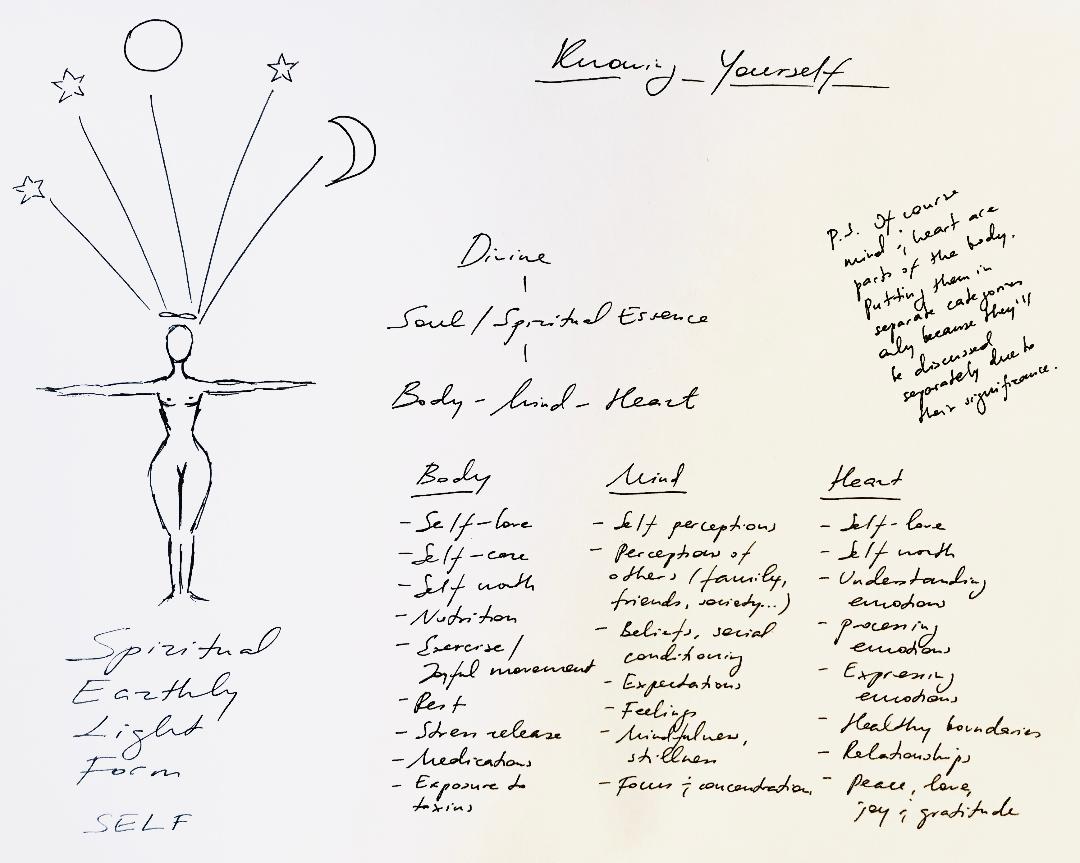 Knowing Yourself
P.S. Of course
mind & heart are
parts of the body.
Putting them in
separate categories
only because they'll
be discussed
separately due to
their significance.
Divine
Soul / Spiritual Essence
Body - Mind - Heart
Body
- Self-love
- Self-care
- Self worth
- Nutrition
- Exercise /
Joyful movement
- Rest
- Stress release
- Medications
- Exposure to
toxins
Mind
- Self perceptions
- Perceptions of
others (family,
friends, society...)
- Beliefs, social
conditioning
- Expectations
- Feelings
- Mindfulness,
stillness
- Focus & concentration
Heart
- Self-love
- Self worth
- Understanding
emotions
- Processing
emotions
- Expressing
emotions
- Healthy boundaries
- Relationships
- Peace, love,
joy & gratitude
Spiritual
Earthly
Light
Form
SELF